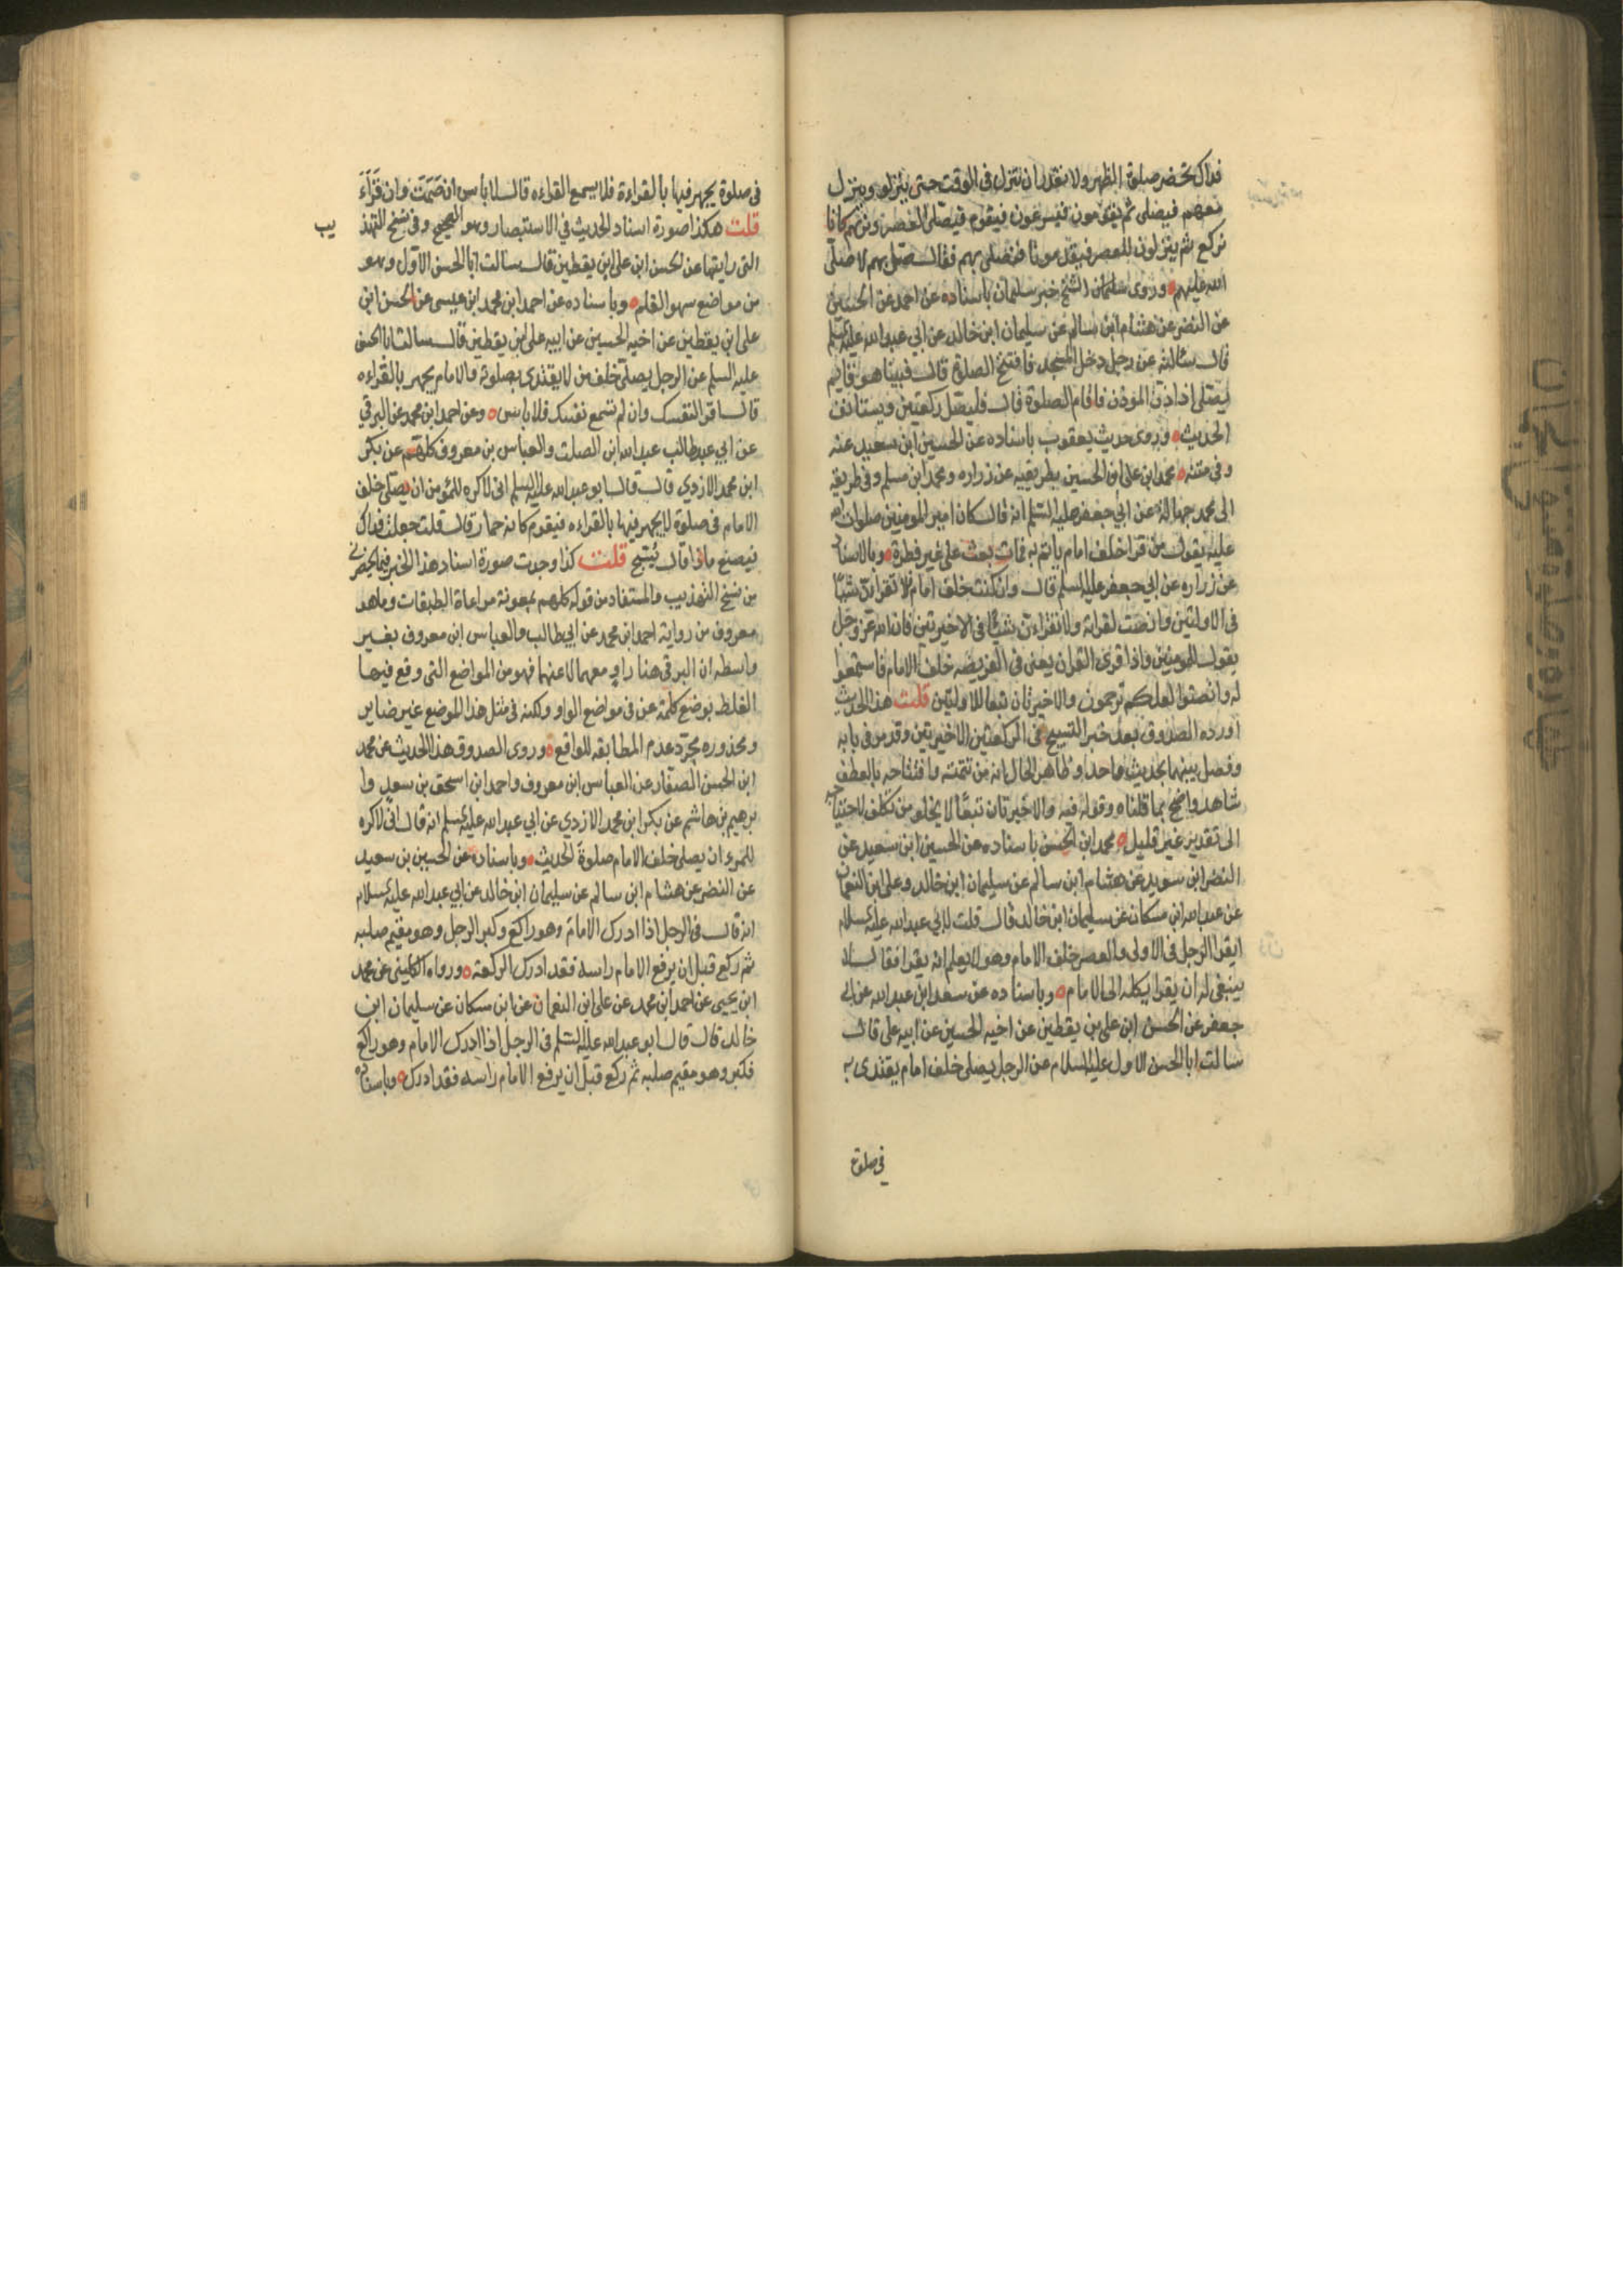 فداك تحضر صلوة الظهر ولا نقدر ان ننزل في الوقت حتى ينزلو وننزل
معهم فيصلى ثم يقومون فيسرعون فيقوم فيصلى العصر ونريهم كانا
نركع ثم ينزلون للعصر فيقدمونا فنصلى بهم فقال صل بهم لا صلى
الله عليهم وروى الشيخ خبر سليمان باسناده عن احمد عن الحسين
عن النضر عن هشام ابن سالم عن سليمان ابن خالد عن ابي عبد الله عليه السلم
قال سئالته عن رجل دخل المسجد فافتتح الصلوة قال فبينا هو قايم
يصلى اذ اذن الموذن فاقام الصلوة قال فليصل ركعتين ويستانف
الحديث وروى حديث يعقوب باسناده عن الحسين ابن سعيد عنه
وفي متنه محمد ابن على ابن الحسين بطريقيه عن زراره ومحمد ابن مسلم وفي طريقه
الى محمد جهالة عن ابي جعفر عليه السلم انه قال كان امير المومنين صلوات الله
عليه يقول من قرا خلف امام ياتم به فمات بعث على غير فطرة وبالاسناد
عن زراره عن ابي جعفر عليه السلم قال وان كنت خلف امام فلا تقران شيئا
في الاولتين وانصت لقراته ولا تقراءن شيئا في الاخيرتين فان الله عز وجل
يقول للمومنين واذا قرى القران يعنى في الفريضه خلف الامام فاستمعوا
له وانصتوا لعلكم ترحمون والاخيرتان تبعا للاولتين قلت هذا الحديث
اورده الصدوق بعد خبر التسبيح في الركعتين الاخيرتين وقد مر في بابه
وفصل بينهما بحديث واحد وظاهر الحال انه من تتمته وافتتاحه بالعطف
شاهد واضح بما قلناه وقوله فيه والاخيرتان تبعا لا يخلو من تكلف لاحتياجه
الى تقدير غير قليل محمد ابن الحسن باسناده عن الحسين ابن سعيد عن
النضر ابن سويد عن هشام ابن سالم عن سليمان ابن خالد وعلى ابن النعمان
عن عبد الله ابن مسكان عن سليمان ابن خالد قال قلت لابي عبد الله عليه السلام
ايقرا الرجل في الاولى والعصر خلف الامام وهو لا يعلم انه يقرا فقال لا
ينبغى له ان يقرا يكله الى الامام وباسناده عن سعد ابن عبد الله عن ابى
جعفر عن الحسن ابن على بن يقطين عن اخيه الحسين عن ابيه على قال
سالت ابا الحسن الاول عليه السلام عن الرجل يصلى خلف امام يقتدى به
في صلوة
في صلوة يجهر فيها بالقراءة فلا يسمع القراءه قال لا باس ان صَمَتَ وان قَرَأَ
قلت هكذا صورة اسناد الحديث في الاستبصار وهو الصحيح وفي نسخ التهذ يب
التى رايتها عن الحسن ابن على ابن يقطين قال سالت ابا الحسن الاول وهو
من مواضع سهو القلم وباسناده عن احمد ابن محمد ابن عيسى عن الحسن ابن
على ابن يقطين عن اخيه الحسين عن ابيه على ابن يقطين قال سالت ابا الحسن
عليه السلم عن الرجل يصلى خلف من لا يقتدى بصلوته والامام يجهر بالقراءه
قال اقرا لنفسك وان لم تسمع نفسك فلا باس وعن احمد ابن محمد عن البرقي
عن ابي طالب عبد الله ابن الصلت والعباس بن معروف كلهم عن بكر
ابن محمد الازدي قال قال ابو عبد الله عليه السلم انى لاكره للمؤمن ان يصلى خلف
الامام في صلوة لا يجهر فيها بالقراءه فيقوم كانه حمار قال قلت جعلت فداك
فيصنع ماذا قال يُسَبّح قلت كذا وجدت صورة اسناد هذا الخبر فيما يحضرني
من نسخ التهذيب والمستفاد من قوله كلهم بمعونة مراعاة الطبقات وما هو
معروف من رواية احمد ابن محمد عن ابي طالب والعباس ابن معروف بغير
واسطه ان البرقى هنا راوٍ معهما لا عنهما فهو من المواضع التى وقع فيها
الغلط بوضع كلمة عن في مواضع الواو ولكنه في مثل هذا الموضع غير ضاير
ومحذوره مجرّد عدم المطابقه للواقع وروى الصدوق هذا الحديث عن محمد
ابن الحسن الصفار عن العباس ابن معروف واحمد ابن اسحق بن سعد وا
برهيم بن هاشم عن بكر ابن محمد الازدي عن ابي عبد الله عليه السلم انه قال انى لاكره
للمرء ان يصلى خلف الامام صلوة الحديث وباسناده عن الحسين بن سعيد
عن النضر عن هشام ابن سالم عن سليمان ابن خالد عن ابي عبد الله عليه السلام
انه قال في الرجل اذا ادرك الامام وهو راكع وكبر الرجل وهو مقيم صلبه
ثم ركع قبل ان يرفع الامام راسه فقد ادرك الركعة ورواه الكلينى عن محمد
ابن يحيى عن احمد ابن محمد عن على ابن النعمان عن ابن مسكان عن سليمان ابن
خالد قال قال ابو عبد الله عليه السلم في الرجل اذا ادرك الامام وهو راكع
فكبر وهو مقيم صلبه ثم ركع قبل ان يرفع الامام راسه فقد ادرك وباسناده